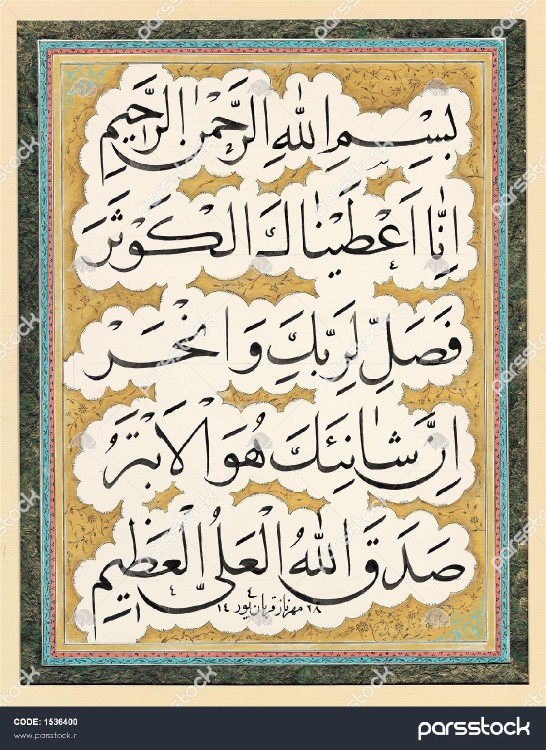 بِسْمِ اللهِ الرَّحْمنِ الرَّحیمِ
اِنّا اَعْطَیْناكَ الْکَوْثَرَ
فَصَلِّ لِرَبِّكَ وَ انْحَرْ
اِنَّ شانِئَكَ هُوَ الْاَبْتَرُ
صَدَقَ اللهُ الْعَلیُّ الْعَظیمِ
مهرناز قربان‌پور
CODE: 1536400
www.parsstock.ir
parsstock